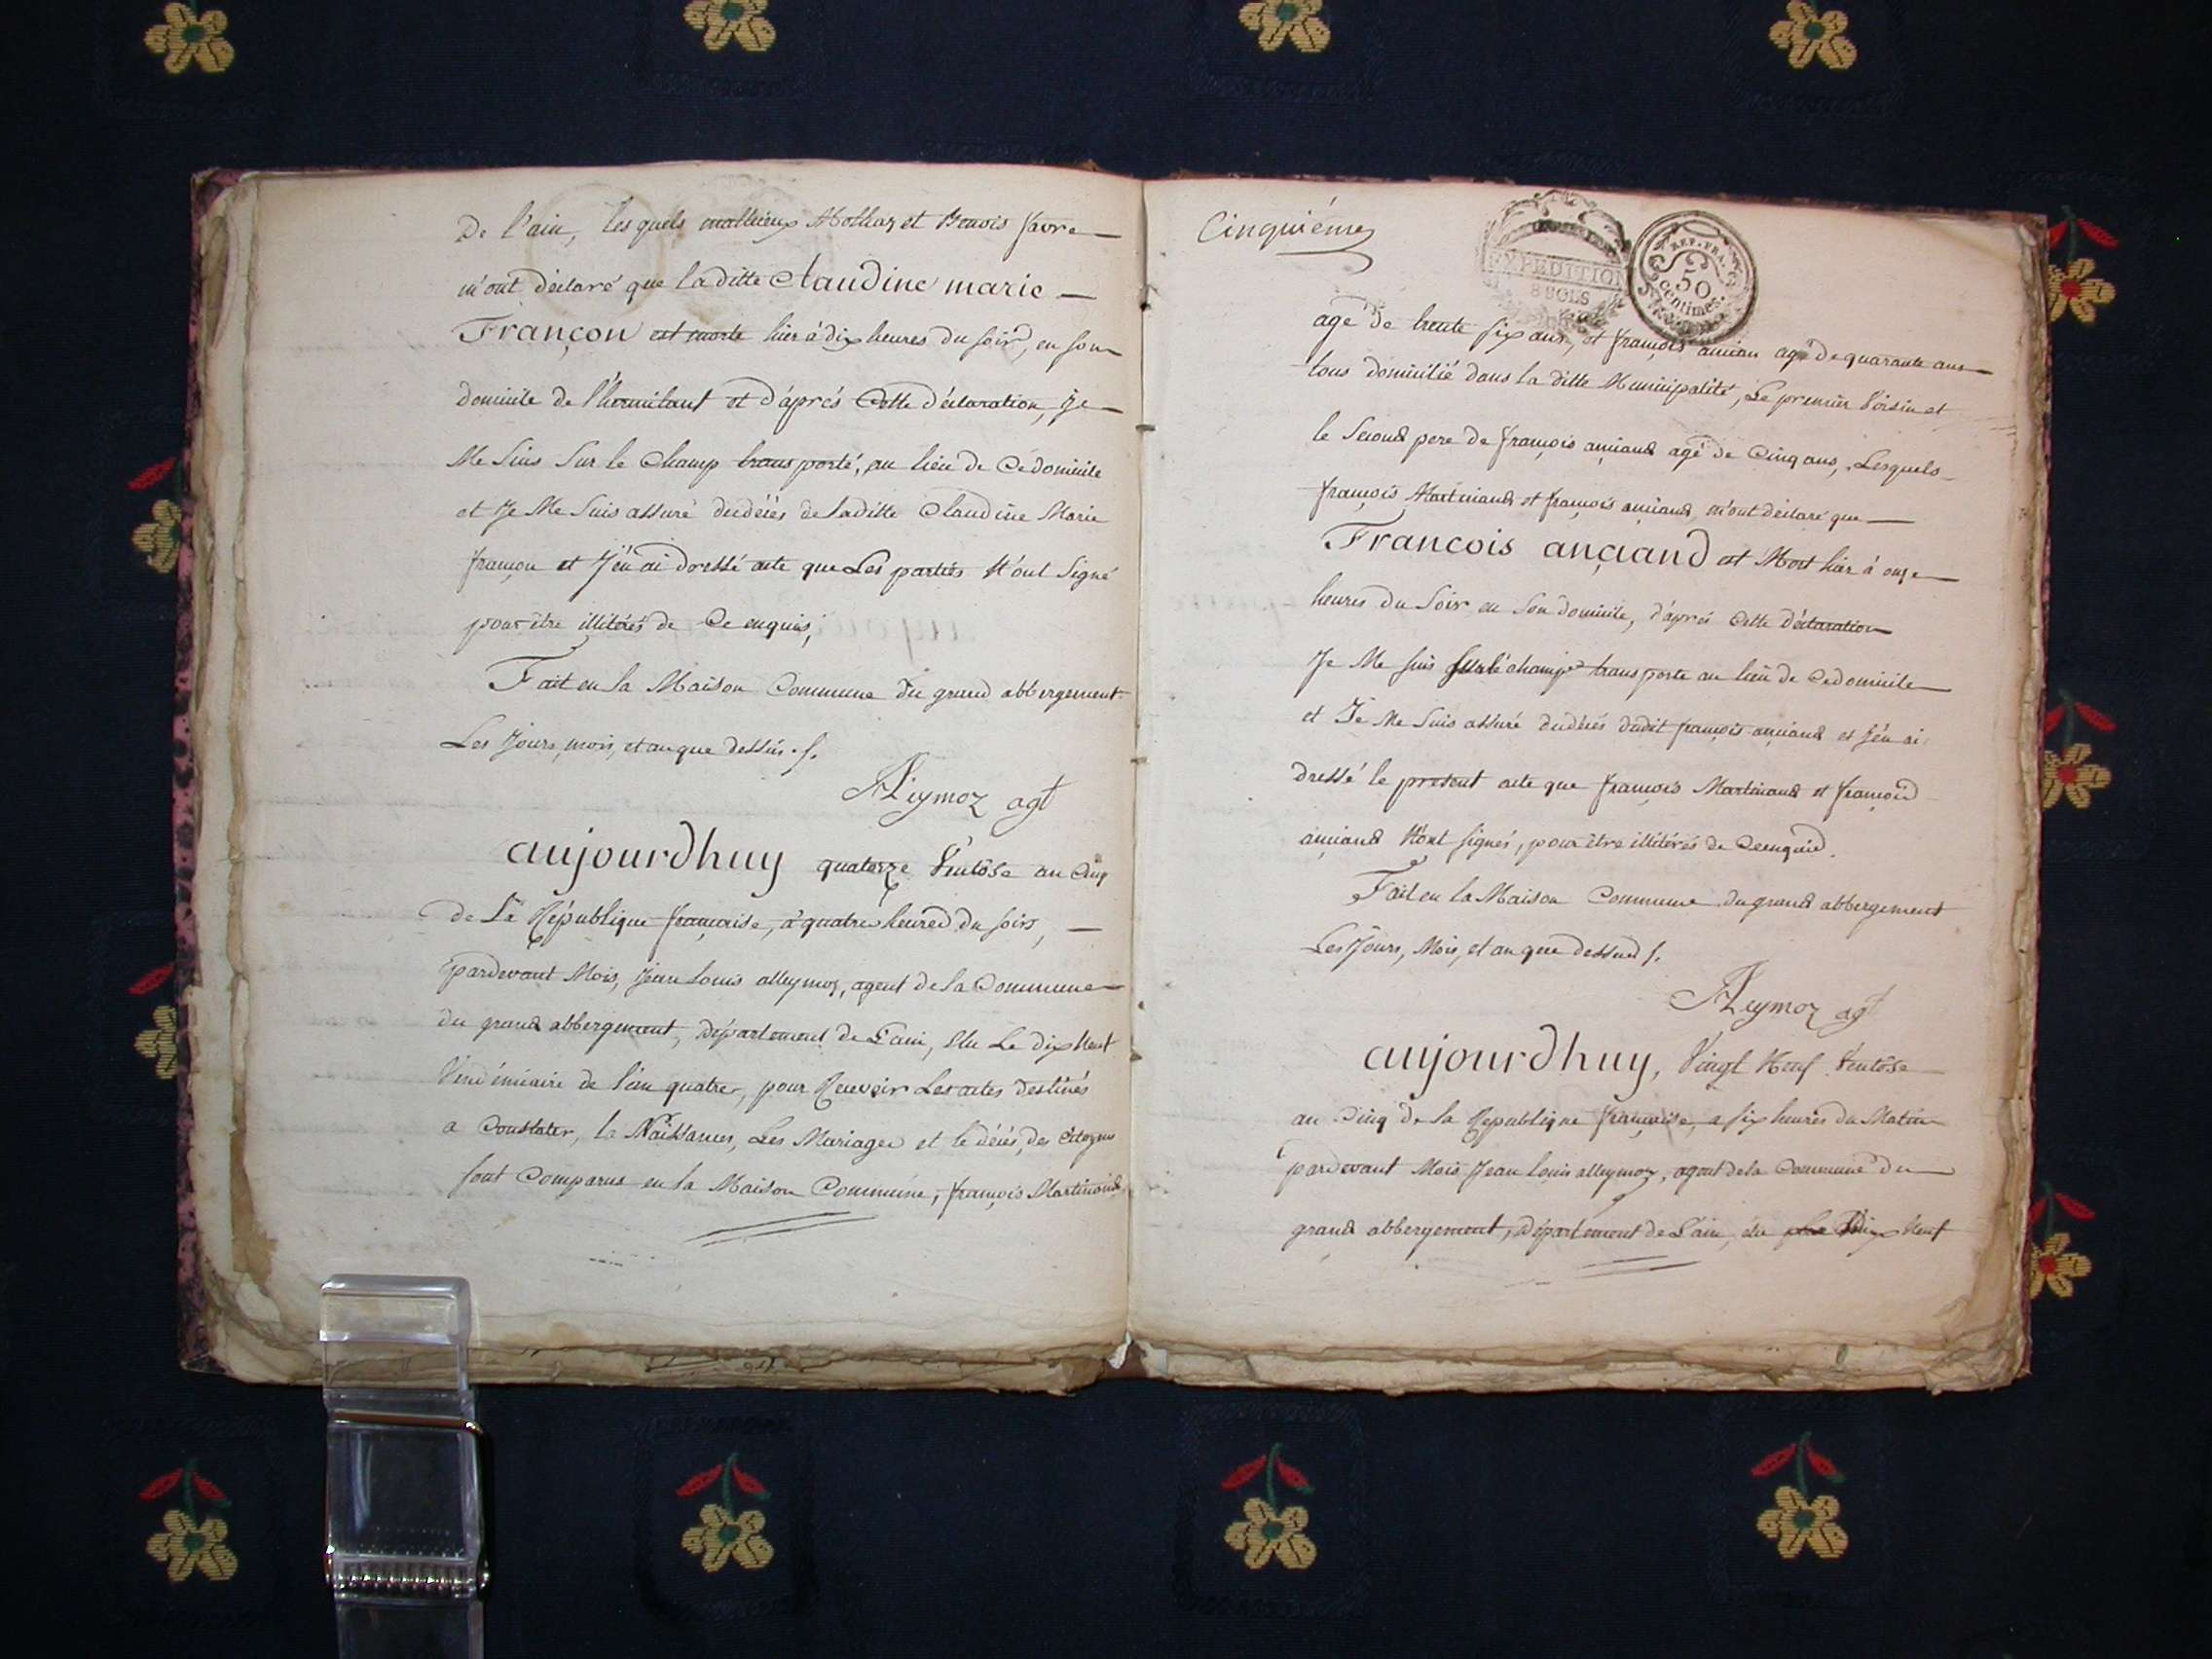 De l'ain, lesquels mathieux Mothaz et Benois favre
m'ont déclaré que la ditte Claudine marie
Françon est morte hier à dix heures du soir, en son
domicile de l'hermitant et d'áprés Cette déclaration, Je
Me Suis Sur le Champ transporté, au lieu de Ce domicile
et Je Me Suis assuré du décés de laditte Claudine Marie
françon et J'en ai dressé acte que Les parties N'ont Signé
pour être illitérés de Ce enquis,
Fait en la Maison Commune du grand abbergement
Les Jours, mois, et an que dessus.
Alleymoz agt
aujourdhuy quatorze Ventôse an Cinq
de La République française, à quatre heures du soir,
pardevant Mois, Jean Louis alleymoz, agent de la Commune
du grand abbergement, Département de L'ain, élu Le dix Neuf
Vendémiaire de l'an quatre, pour Recevoir Les actes destinés
a Constater, la Naissances, Les Mariages et le décés, des Citoyens
sont Comparus en la Maison Commune, françois Martinand
Cinquiéme
EXPEDITION
8 SOLS
REP. FRA.
50
centimes.
agé de trente six ans, et françois ançian agé de quarante ans
tous domicilié dans la ditte Municipalité, Le premier Voisin et
le Second pere de françois ançiand agé de Cinq ans, Lesquels
françois Martinand et françois ançiand, m'ont déclaré que
Francois ançiand est Mort hier à onze
heures du Soir en Son domicile, d'áprés Cette déclaration
Je Me suis sur le champ transporté au lieu de Ce domicile
et Je Me Suis assuré du décés dudit françois ançiand et J'en ai
dressé le présent acte que françois Martinand et françois
ançiand N'ont signés, pour être illitérés de Ce enquis.
Fait en la Maison Commune du grand abbergement
Les Jours, Mois, et an que dessus
Alleymoz agt
aujourdhuy, Vingt Neuf Ventôse
an Cinq de la République française, a six heures du Matin
pardevant Mois Jean Louis alleymoz, agent de la Commune du
grand abbergement, Département de L'ain, élu Dix Neuf